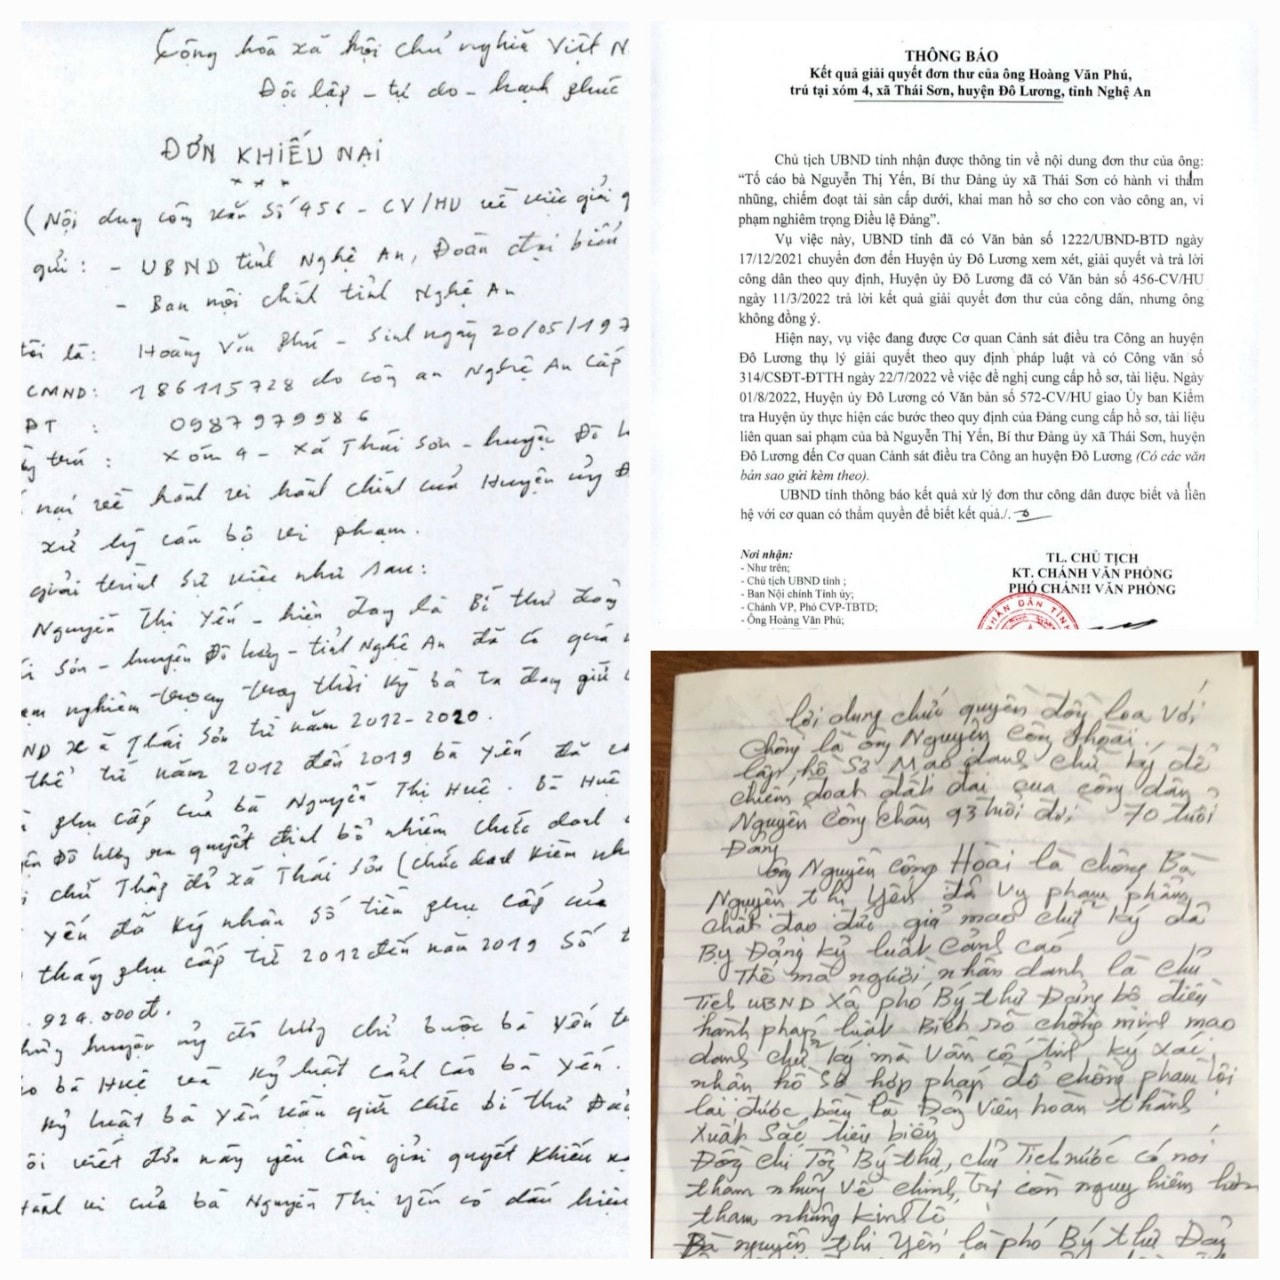 Cộng hòa xã hội chủ nghĩa Việt N
Độc lập - tự do - hạnh phúc
ĐƠN KHIẾU NẠI
(Nội dung công văn số 456 - CV/HU về việc giải q
gửi: - UBND tỉnh Nghệ An, Đoàn đại biểu
- Ban nội chính tỉnh Nghệ An
tôi là: Hoàng Văn Phú - Sinh ngày 20/05/197
CMND: 186115728 do công an Nghệ An cấp
ĐT : 0987979986
trú : Xóm 4 - Xã Thái Sơn - huyện Đô L
nại về hành vi hành chính của Huyện ủy Đ
xử lý cán bộ vi phạm.
giải trình sự việc như sau:
Nguyễn Thị Yến - hiện đang là Bí thư đảng
Sơn - huyện Đô Lương - tỉnh Nghệ An đã có quá
nghiêm trọng trong thời kỳ bà ta đang giữ
ND xã Thái Sơn từ năm 2012-2020.
thể từ năm 2012 đến 2019 bà Yến đã
phụ cấp của bà Nguyễn Thị Huệ. Bà Huệ
Đô Lương ra quyết định bổ nhiệm chức danh
chữ Thập đỏ xã Thái Sơn (chức danh kiêm nh
Yến đã ký nhận số tiền phụ cấp của
tháng phụ cấp từ 2012 đến năm 2019 số t
.924.000đ.
huyện ủy đô lương chỉ buộc bà Yến t
bà Huệ và kỷ luật cảnh cáo bà Yến.
kỷ luật bà Yến vẫn giữ chức bí thư Đản
ôi viết đơn này yêu cầu giải quyết khiếu n
hành vi của bà Nguyễn Thị Yến có dấu hiệu
THÔNG BÁO
Kết quả giải quyết đơn thư của ông Hoàng Văn Phú,
trú tại xóm 4, xã Thái Sơn, huyện Đô Lương, tỉnh Nghệ An
Chủ tịch UBND tỉnh nhận được thông tin về nội dung đơn thư của ông:
“Tố cáo bà Nguyễn Thị Yến, Bí thư Đảng ủy xã Thái Sơn có hành vi thăm
nhũng, chiếm đoạt tài sản cấp dưới, khai man hồ sơ cho con vào công an, vi
phạm nghiêm trọng Điều lệ Đảng”.
Vụ việc này, UBND tỉnh đã có Văn bản số 1222/UBND-BTD ngày
17/12/2021 chuyển đơn đến Huyện ủy Đô Lương xem xét, giải quyết và trả lời
công dân theo quy định, Huyện ủy Đô Lương đã có Văn bản số 456-CV/HU
ngày 11/3/2022 trả lời kết quả giải quyết đơn thư của công dân, nhưng ông
không đồng ý.
Hiện nay, vụ việc đang được Cơ quan Cảnh sát điều tra Công an huyện
Đô Lương thụ lý giải quyết theo quy định pháp luật và có Công văn số
314/CSĐT-ĐTTH ngày 22/7/2022 về việc đề nghị cung cấp hồ sơ, tài liệu. Ngày
01/8/2022, Huyện ủy Đô Lương có Văn bản số 572-CV/HU giao Ủy ban Kiểm
tra Huyện ủy thực hiện các bước theo quy định của Đảng cung cấp hồ sơ, tài liệu
liên quan sai phạm của bà Nguyễn Thị Yến, Bí thư Đảng ủy xã Thái Sơn, huyện
Đô Lương đến Cơ quan Cảnh sát điều tra Công an huyện Đô Lương (Có các văn
bản sao gửi kèm theo).
UBND tỉnh thông báo kết quả xử lý đơn thư công dân được biết và liên
hệ với cơ quan có thẩm quyền để biết kết quả./.
Nơi nhận:
- Như trên;
- Chủ tịch UBND tỉnh ;
- Ban Nội chính Tỉnh ủy;
- Chánh VP, Phó CVP-TBTD;
- Ông Hoàng Văn Phú;
TL. CHỦ TỊCH
KT. CHÁNH VĂN PHÒNG
PHÓ CHÁNH VĂN PHÒNG
NHÂN DÂN TỈNH
lợi dung chức quyền đồng loa với
chồng là ông Nguyễn Công Hoài.
lập hồ sơ Mạo danh chữ ký để
chiếm đoạt đất đai của công dân
Nguyễn Công Chân 93 tuổi đời 70 tuổi
Đảng
Ông Nguyễn Công Hoài là chồng Bà
Nguyễn thị Yến đã Vy phạm phẩm
chất đạo đức giả mạo chữ ký đã
By Đảng kỷ luật cảnh cáo
Thế mà người nhân danh là chủ
Tich UBND xã phó Bý thư Đảng bộ điều
hành pháp luật Biết rõ chồng mình mạo
danh chữ ký mà vẫn cố tình ký xác
nhận hồ sơ hợp pháp để chồng phạm tội
lại được bầu là Đảng Viên hoàn thành
xuất sắc tiêu biểu
Đồng chí Tổng Bý thư, chủ Tịch nước có nói
tham nhũng về chính trị còn nguy hiểm hơn
tham nhũng kinh tế
Bà nguyễn thị Yến là phó Bý thư Đảng